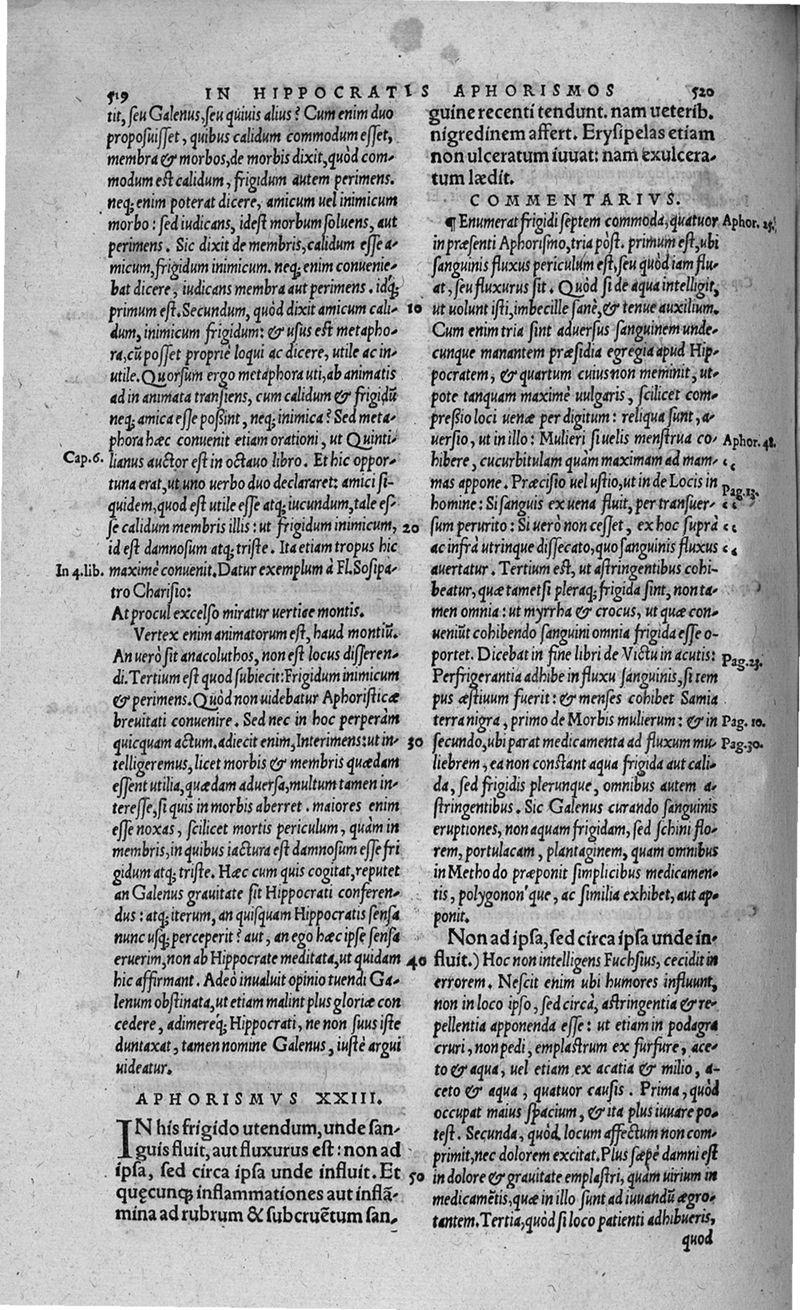 519 IN HIPPOCRATIS APHORISMOS 520
tit, seu Galenus, seu quiuis alius? Cum enim duo
proposuisset, quibus calidum commodum esset,
membra & morbos, de morbis dixit, quòd com-
modum est calidum, frigidum autem perimens.
neq; enim poterat dicere, amicum uel inimicum
morbo: sed iudicans, idest morbum soluens, aut
perimens. Sic dixit de membris, calidum esse a-
micum, frigidum inimicum. neq; enim conuenie-
bat dicere, iudicans membra aut perimens. idq;
primum est. Secundum, quòd dixit amicum cali-
dum, inimicum frigidum: & usus est metapho-
ra, cũ posset propriè loqui ac dicere, utile ac in-
utile. Quorsum ergo metaphora uti, ab animatis
ad in animata transiens, cum calidum & frigidũ
neq; amica esse possint, neq; inimica? Sed meta-
phora hæc conuenit etiam orationi, ut Quinti-
Cap. 6. lianus auctor est in octauo libro. Et hic oppor-
tuna erat, ut uno uerbo duo declararet: amici si-
quidem, quod est utile esse atq; iucundum, tale es-
se calidum membris illis: ut frigidum inimicum,
id est damnosum atq; triste. Ita etiam tropus hic
In 4. lib. maximè conuenit. Datur exemplum à Fl. Sosipa-
tro Charisio:
At procul excelso miratur uertice montis.
Vertex enim animatorum est, haud montiũ.
An uerò sit anacoluthos, non est locus disseren-
di. Tertium est quod subiecit: Frigidum inimicum
& perimens. Quòd non uidebatur Aphoristicæ
breuitati conuenire. Sed nec in hoc perperàm
quicquam actum. adiecit enim, Interimens: ut in-
telligeremus, licet morbis & membris quædam
essent utilia, quædam aduersa, multum tamen in-
teresse, si quis in morbis aberret. maiores enim
esse noxas, scilicet mortis periculum, quàm in
membris, in quibus iactura est damnosum esse fri
gidum atq; triste. Hæc cum quis cogitat, reputet
an Galenus grauitate sit Hippocrati conferen-
dus: atq; iterum, an quisquam Hippocratis sensa
nunc usq; perceperit? aut, an ego hæc ipse sensa
eruerim, non ab Hippocrate meditata, ut quidam
hic affirmant. Adeò inualuit opinio tuendi Ga-
lenum obstinata, ut etiam malint plus gloriæ con
cedere, adimereq; Hippocrati, ne non suus iste
duntaxat, tamen nomine Galenus, iustè argui
uideatur.
APHORISMVS XXIII.
IN his frigido utendum, unde san-
guis fluit, aut fluxurus est: non ad
ipsa, sed circa ipsa unde influit. Et
quęcunq; inflammationes aut inflã-
mina ad rubrum & subcruẽtum san-
10
20
30
40
50
guine recenti tendunt. nam ueterib.
nigredinem affert. Erysipelas etiam
non ulceratum iuuat: nam exulcera-
tum lædit.
COMMENTARIVS.
¶ Enumerat frigidi septem commoda, quatuor Aphor. 25.
in præsenti Aphorismo, tria pòst. primum est, ubi
sanguinis fluxus periculum est, seu quòd iam flu-
at, seu fluxurus sit. Quòd si de aqua intelligit,
ut uolunt isti, imbecille sanè, & tenue auxilium.
Cum enim tria sint aduersus sanguinem unde-
cunque manantem præsidia egregia apud Hip-
pocratem, & quartum cuius non meminit, ut-
pote tanquam maximè uulgaris, scilicet com-
pressio loci uenæ per digitum: reliqua sunt, a-
uersio, ut in illo: Mulieri si uelis menstrua co- Aphor. 48.
hibere, cucurbitulam quàm maximam ad mam- ‘‘
mas appone. Præcisio uel ustio, ut in de Locis in Pag. 13.
homine: Si sanguis ex uena fluit, per transuer- ‘‘
sum perurito: Si uerò non cesset, ex hoc suprà ‘‘
ac infrà utrinque dissecato, quo sanguinis fluxus ‘‘
auertatur. Tertium est, ut astringentibus cohi-
beatur, quæ tametsi pleraq; frigida sint, non ta-
men omnia: ut myrrha & crocus, ut quæ con-
ueniũt cohibendo sanguini omnia frigida esse o-
portet. Dicebat in fine libri de Victu in acutis: Pag. 23.
Perfrigerantia adhibe in fluxu sanguinis, si tem
pus æstiuum fuerit: & menses cohibet Samia
terra nigra, primo de Morbis mulierum: & in Pag. 10.
secundo, ubi parat medicamenta ad fluxum mu- Pag. 30.
liebrem, ea non constant aqua frigida aut cali-
da, sed frigidis plerunque, omnibus autem a-
stringentibus. Sic Galenus curando sanguinis
eruptiones, non aquam frigidam, sed schini flo-
rem, portulacam, plantaginem, quam omnibus
in Methodo præponit simplicibus medicamen-
tis, polygonon'que, ac similia exhibet, aut ap-
ponit.
Non ad ipsa, sed circa ipsa unde in-
fluit.) Hoc non intelligens Fuchsius, cecidit in
errorem. Nescit enim ubi humores influunt,
non in loco ipso, sed circà, astringentia & re-
pellentia apponenda esse: ut etiam in podagra
cruri, non pedi, emplastrum ex furfure, ace-
to & aqua, uel etiam ex acatia & milio, a-
ceto & aqua, quatuor causis. Prima, quòd
occupat maius spacium, & ita plus iuuare po-
test. Secunda, quòd locum affectum non com-
primit, nec dolorem excitat. Plus sæpè damni est
in dolore & grauitate emplastri, quàm uirium in
medicamẽtis, quæ in illo sunt ad iuuandũ ægro-
tantem. Tertia, quòd si loco patienti adhibueris,
quod